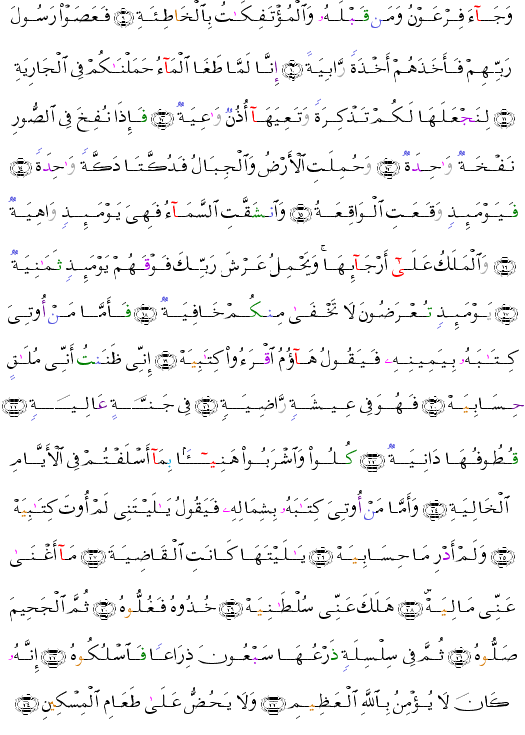 وَجَآءَ فِرْعَوْنُ وَمَن قَبْلَهُۥ وَٱلْمُؤْتَفِكَٰتُ بِٱلْخَاطِئَةِ ۝٩ فَعَصَوْا۟ رَسُولَ
رَبِّهِمْ فَأَخَذَهُمْ أَخْذَةً رَّابِيَةً ۝١٠ إِنَّا لَمَّا طَغَا ٱلْمَآءُ حَمَلْنَٰكُمْ فِى ٱلْجَارِيَةِ
۝١١ لِنَجْعَلَهَا لَكُمْ تَذْكِرَةً وَتَعِيَهَآ أُذُنٌ وَٰعِيَةٌ ۝١٢ فَإِذَا نُفِخَ فِى ٱلصُّورِ
نَفْخَةٌ وَٰحِدَةٌ ۝١٣ وَحُمِلَتِ ٱلْأَرْضُ وَٱلْجِبَالُ فَدُكَّتَا دَكَّةً وَٰحِدَةً ۝١٤
فَيَوْمَئِذٍ وَقَعَتِ ٱلْوَاقِعَةُ ۝١٥ وَٱنشَقَّتِ ٱلسَّمَآءُ فَهِىَ يَوْمَئِذٍ وَاهِيَةٌ
۝١٦ وَٱلْمَلَكُ عَلَىٰٓ أَرْجَآئِهَا ۚ وَيَحْمِلُ عَرْشَ رَبِّكَ فَوْقَهُمْ يَوْمَئِذٍ ثَمَٰنِيَةٌ
۝١٧ يَوْمَئِذٍ تُعْرَضُونَ لَا تَخْفَىٰ مِنكُمْ خَافِيَةٌ ۝١٨ فَأَمَّا مَنْ أُوتِىَ
كِتَٰبَهُۥ بِيَمِينِهِۦ فَيَقُولُ هَآؤُمُ ٱقْرَءُوا۟ كِتَٰبِيَهْ ۝١٩ إِنِّى ظَنَنتُ أَنِّى مُلَٰقٍ
حِسَابِيَهْ ۝٢٠ فَهُوَ فِى عِيشَةٍ رَّاضِيَةٍ ۝٢١ فِى جَنَّةٍ عَالِيَةٍ ۝٢٢
قُطُوفُهَا دَانِيَةٌ ۝٢٣ كُلُوا۟ وَٱشْرَبُوا۟ هَنِيٓـًٔۢا بِمَآ أَسْلَفْتُمْ فِى ٱلْأَيَّامِ
ٱلْخَالِيَةِ ۝٢٤ وَأَمَّا مَنْ أُوتِىَ كِتَٰبَهُۥ بِشِمَالِهِۦ فَيَقُولُ يَٰلَيْتَنِى لَمْ أُوتَ كِتَٰبِيَهْ
۝٢٥ وَلَمْ أَدْرِ مَا حِسَابِيَهْ ۝٢٦ يَٰلَيْتَهَا كَانَتِ ٱلْقَاضِيَةَ ۝٢٧ مَآ أَغْنَىٰ
عَنِّى مَالِيَهْ ۜ ۝٢٨ هَلَكَ عَنِّى سُلْطَٰنِيَهْ ۝٢٩ خُذُوهُ فَغُلُّوهُ ۝٣٠ ثُمَّ ٱلْجَحِيمَ
صَلُّوهُ ۝٣١ ثُمَّ فِى سِلْسِلَةٍ ذَرْعُهَا سَبْعُونَ ذِرَاعًا فَٱسْلُكُوهُ ۝٣٢ إِنَّهُۥ
كَانَ لَا يُؤْمِنُ بِٱللَّهِ ٱلْعَظِيمِ ۝٣٣ وَلَا يَحُضُّ عَلَىٰ طَعَامِ ٱلْمِسْكِينِ ۝٣٤